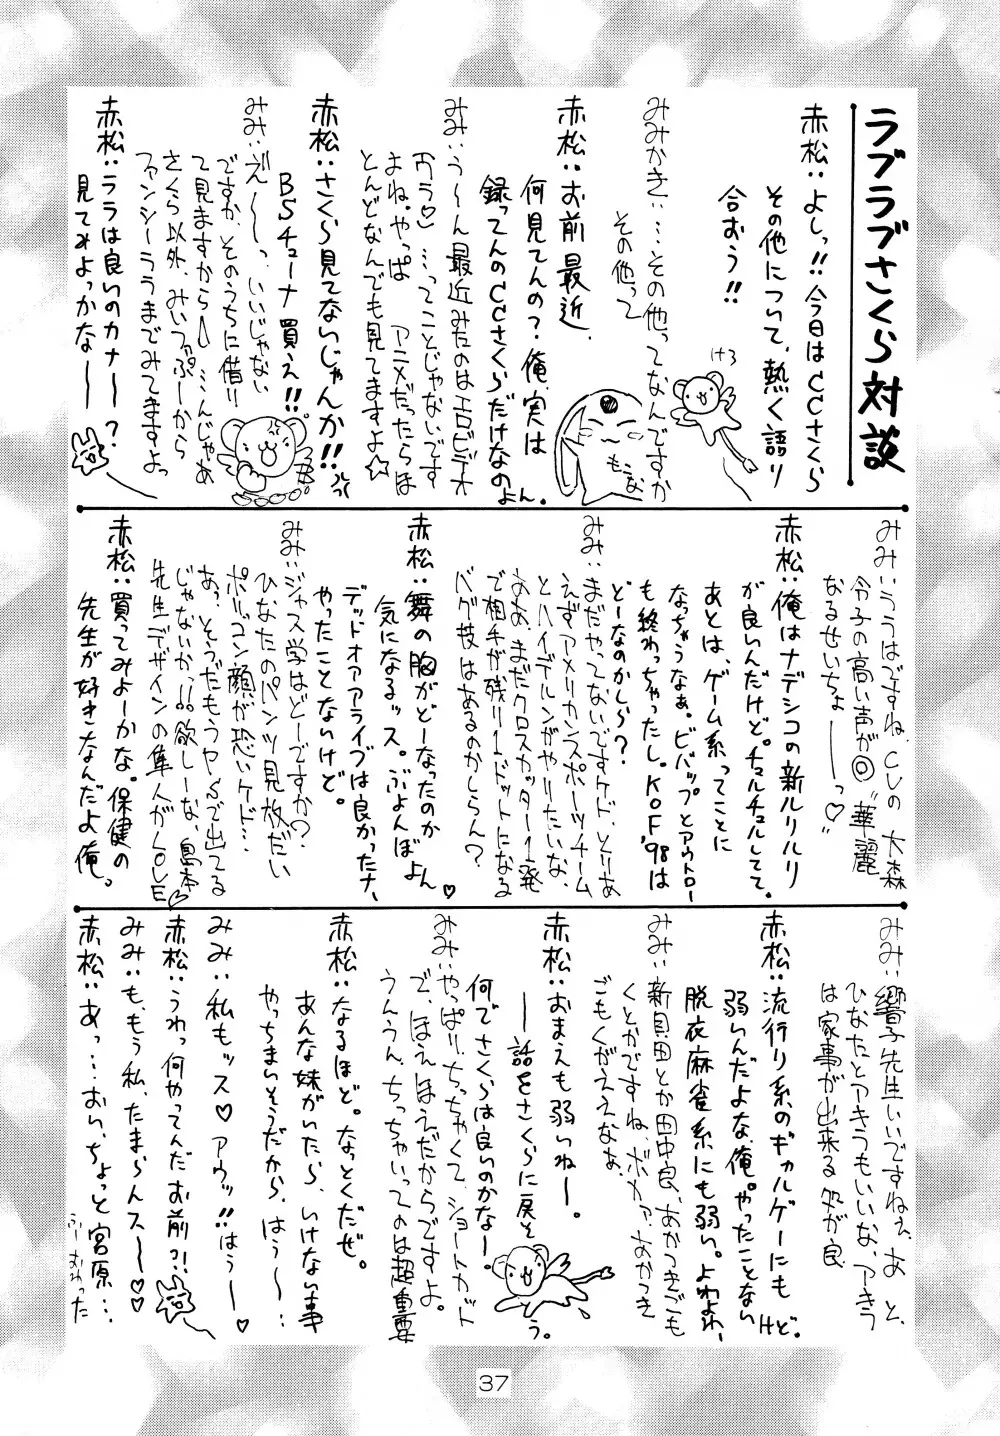 ラブラブさくら対談
赤松：よしっ!!今日はCCさくら
その他について、熱く語り
合おう!!
けろ
みみかき：…その他ってなんですか
その他って
もうな
赤松：お前最近
何見てんの？俺、実は
録ってんのCCさくらだけなの
よん。
みみ：う〜ん最近みたのはエロビデオ
おう♡…ってことじゃないです
よね。やっぱ アニメだったらほ
とんどなんでも見てますよ☆
赤松：さくら見てないじゃんか!!
BSチューナ買え!!
みみ：え〜っ、いいじゃない
ですか、そのうちに借り
て見ますから…んじゃぁ
さくら以外、みいファぷーから
ファンシーララまでみてますよっ
赤松：ララは良いのカナー？
見てみよっかなー
みみ：ララはですね、CVの大森
令子の高い声が◎“華麗
なるせいちょーっ♡”
赤松：俺はナデシコの新ルリルリ
が良いんだけど。チュルチュルしてて。
あとは、ゲーム系ってことに
なっちゃうなぁ。ビバップとアウトロー
も終わっちゃったし。KOF'98は
どーなのかしら？
みみ：まだやってないですケド、とりあ
えずアメリカンスポーツチーム
とハイデルンがやりたいな、
ああ、まだクロスカッター1発
で相手が残り1ドットになる
バグ技はあるのかしらん？
赤松：舞の胸がどーなったのか
気になるッス。ぷよんぽよん♡
デッドオアアライブは良かったナ、
やったことないけど。
みみ：ジャス学はどーですか？
ひなたのパンツ見放だい
ポリゴン顔が恐いケド…
あっ、そうだもうP.Sで出てる
じゃないか。欲しーな、島本
先生デザインの隼人がLOVE
赤松：買ってみよーかな。保健の
先生が好きなんだよ俺。
みみ：響子先生いいですねぇ、あと、
ひなたとアキラもいいな、アキラ
は家事が出来る処が良
赤松：流行り系のギャルゲーにも
弱いんだよな、俺。やったことない
けど。
脱衣麻雀系にも弱い。よわよわ。
みみ：新貝田とか田中良、あかつきごも
くとかですね、ボカァ、あかつき
ごもくがええなぁ
赤松：おまえも弱いねー。
―話をさくらに戻そ
う。
何でさくらは良いのかなー。
みみ：やっぱり、ちっちゃくて、ショートカット
で、ほえほえだからですよ。
うんうん、ちっちゃいってのは超重要
赤松：なるほど。なっとくだぜ。
あんな妹がいたら、いけない事
やっちまいそうだから、はぅ〜…
みみ：私もッス♡アウッ!!はぅー♡
赤松：うわっ何やってんだお前?!!
みみ：も、もう私、たまらんスー♡♡
赤松：あっ…おい、ちょっと宮原…
ふーおわった
37